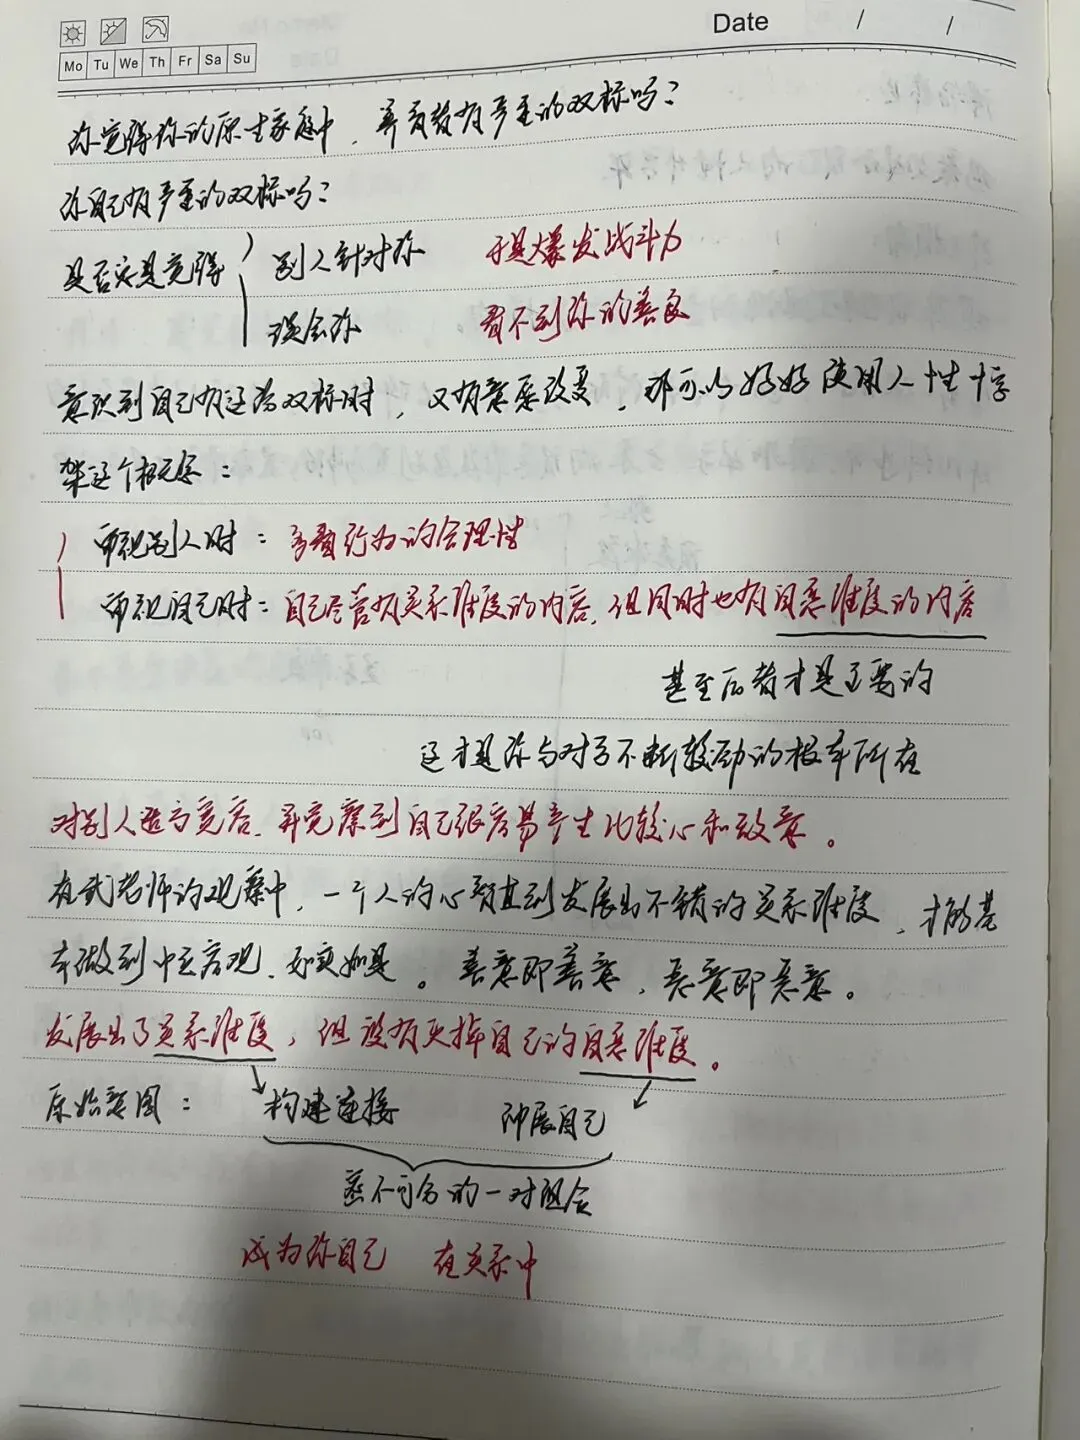 Date / /
Mo Tu We Th Fr Sa Su
你觉得你的原生家庭中，养育者有严重的双标吗？
你自己有严重的双标吗？
是否总是觉得
别人针对你 于是爆发战斗力
误会你 看不到你的善良
意识到自己有这份双标时，又有意愿改变，那可以好好使用人性十字
架这个概念：
审视别人时：多看行为的合理性
审视自己时：自己尽管有关系维度的内容，但同时也有自恋维度的内容
甚至后者才是主要的
这才是你与对方不断较劲的根本所在
对别人适当宽容，并觉察到自己很容易产生比较心和敌意。
在武老师的观察中，一个人的心智直到发展出不错的关系维度，才能基
本做到中正客观、如实如是。善意即善意，恶意即恶意。
发展出了关系维度，但没有灭掉自己的自恋维度。
原始意图： 构建连接 伸展自己
密不可分的一对组合
成为你自己 在关系中